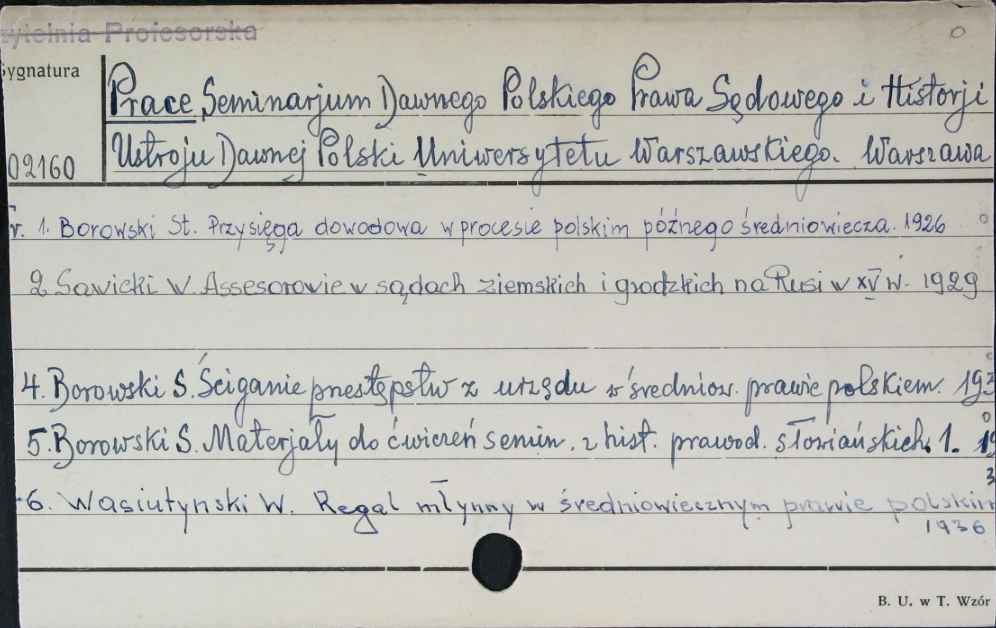 zytelnia Profesorska
Sygnatura
Prace Seminarjum Dawnego Polskiego Prawa Sędowego i Historji
Ustroju Dawnej Polski Uniwersytetu Warszawskiego. Warszawa
02160
r. 1. Borowski St. Przysięga dowodowa w procesie polskim późnego średniowiecza. 1926
2 Sawicki W. Assesorowie w sądach ziemskich i grodzkich na Rusi w XV w. 1929
4. Borowski S. Ściganie przestępstw z urzędu w średniow. prawie polskiem. 193
5. Borowski S. Materjały do ćwiczeń semin. z hist. prawod. słowiańskich. 1. 19
3
6. Wasiutynski W. Regal młynny w średniowiecznym prawie polskim
1936
B. U. w T. Wzór